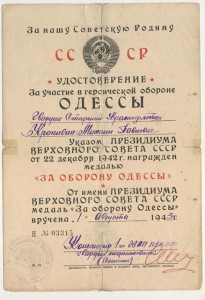 За нашу Советскую Родину
СССР
УДОСТОВЕРЕНИЕ
За участие в героической обороне
ОДЕССЫ
Гвардии Старший
Михаил
Указом ПРЕЗИДИУМА
ВЕРХОВНОГО СОВЕТА СССР
от 22 декабря 1942 г. награжден
медалью
«ЗА ОБОРОНУ ОДЕССЫ»
От имени ПРЕЗИДИУМА
ВЕРХОВНОГО СОВЕТА СССР
медаль «За оборону Одессы»
вручена „1“ Августа 1943 г.
Н №